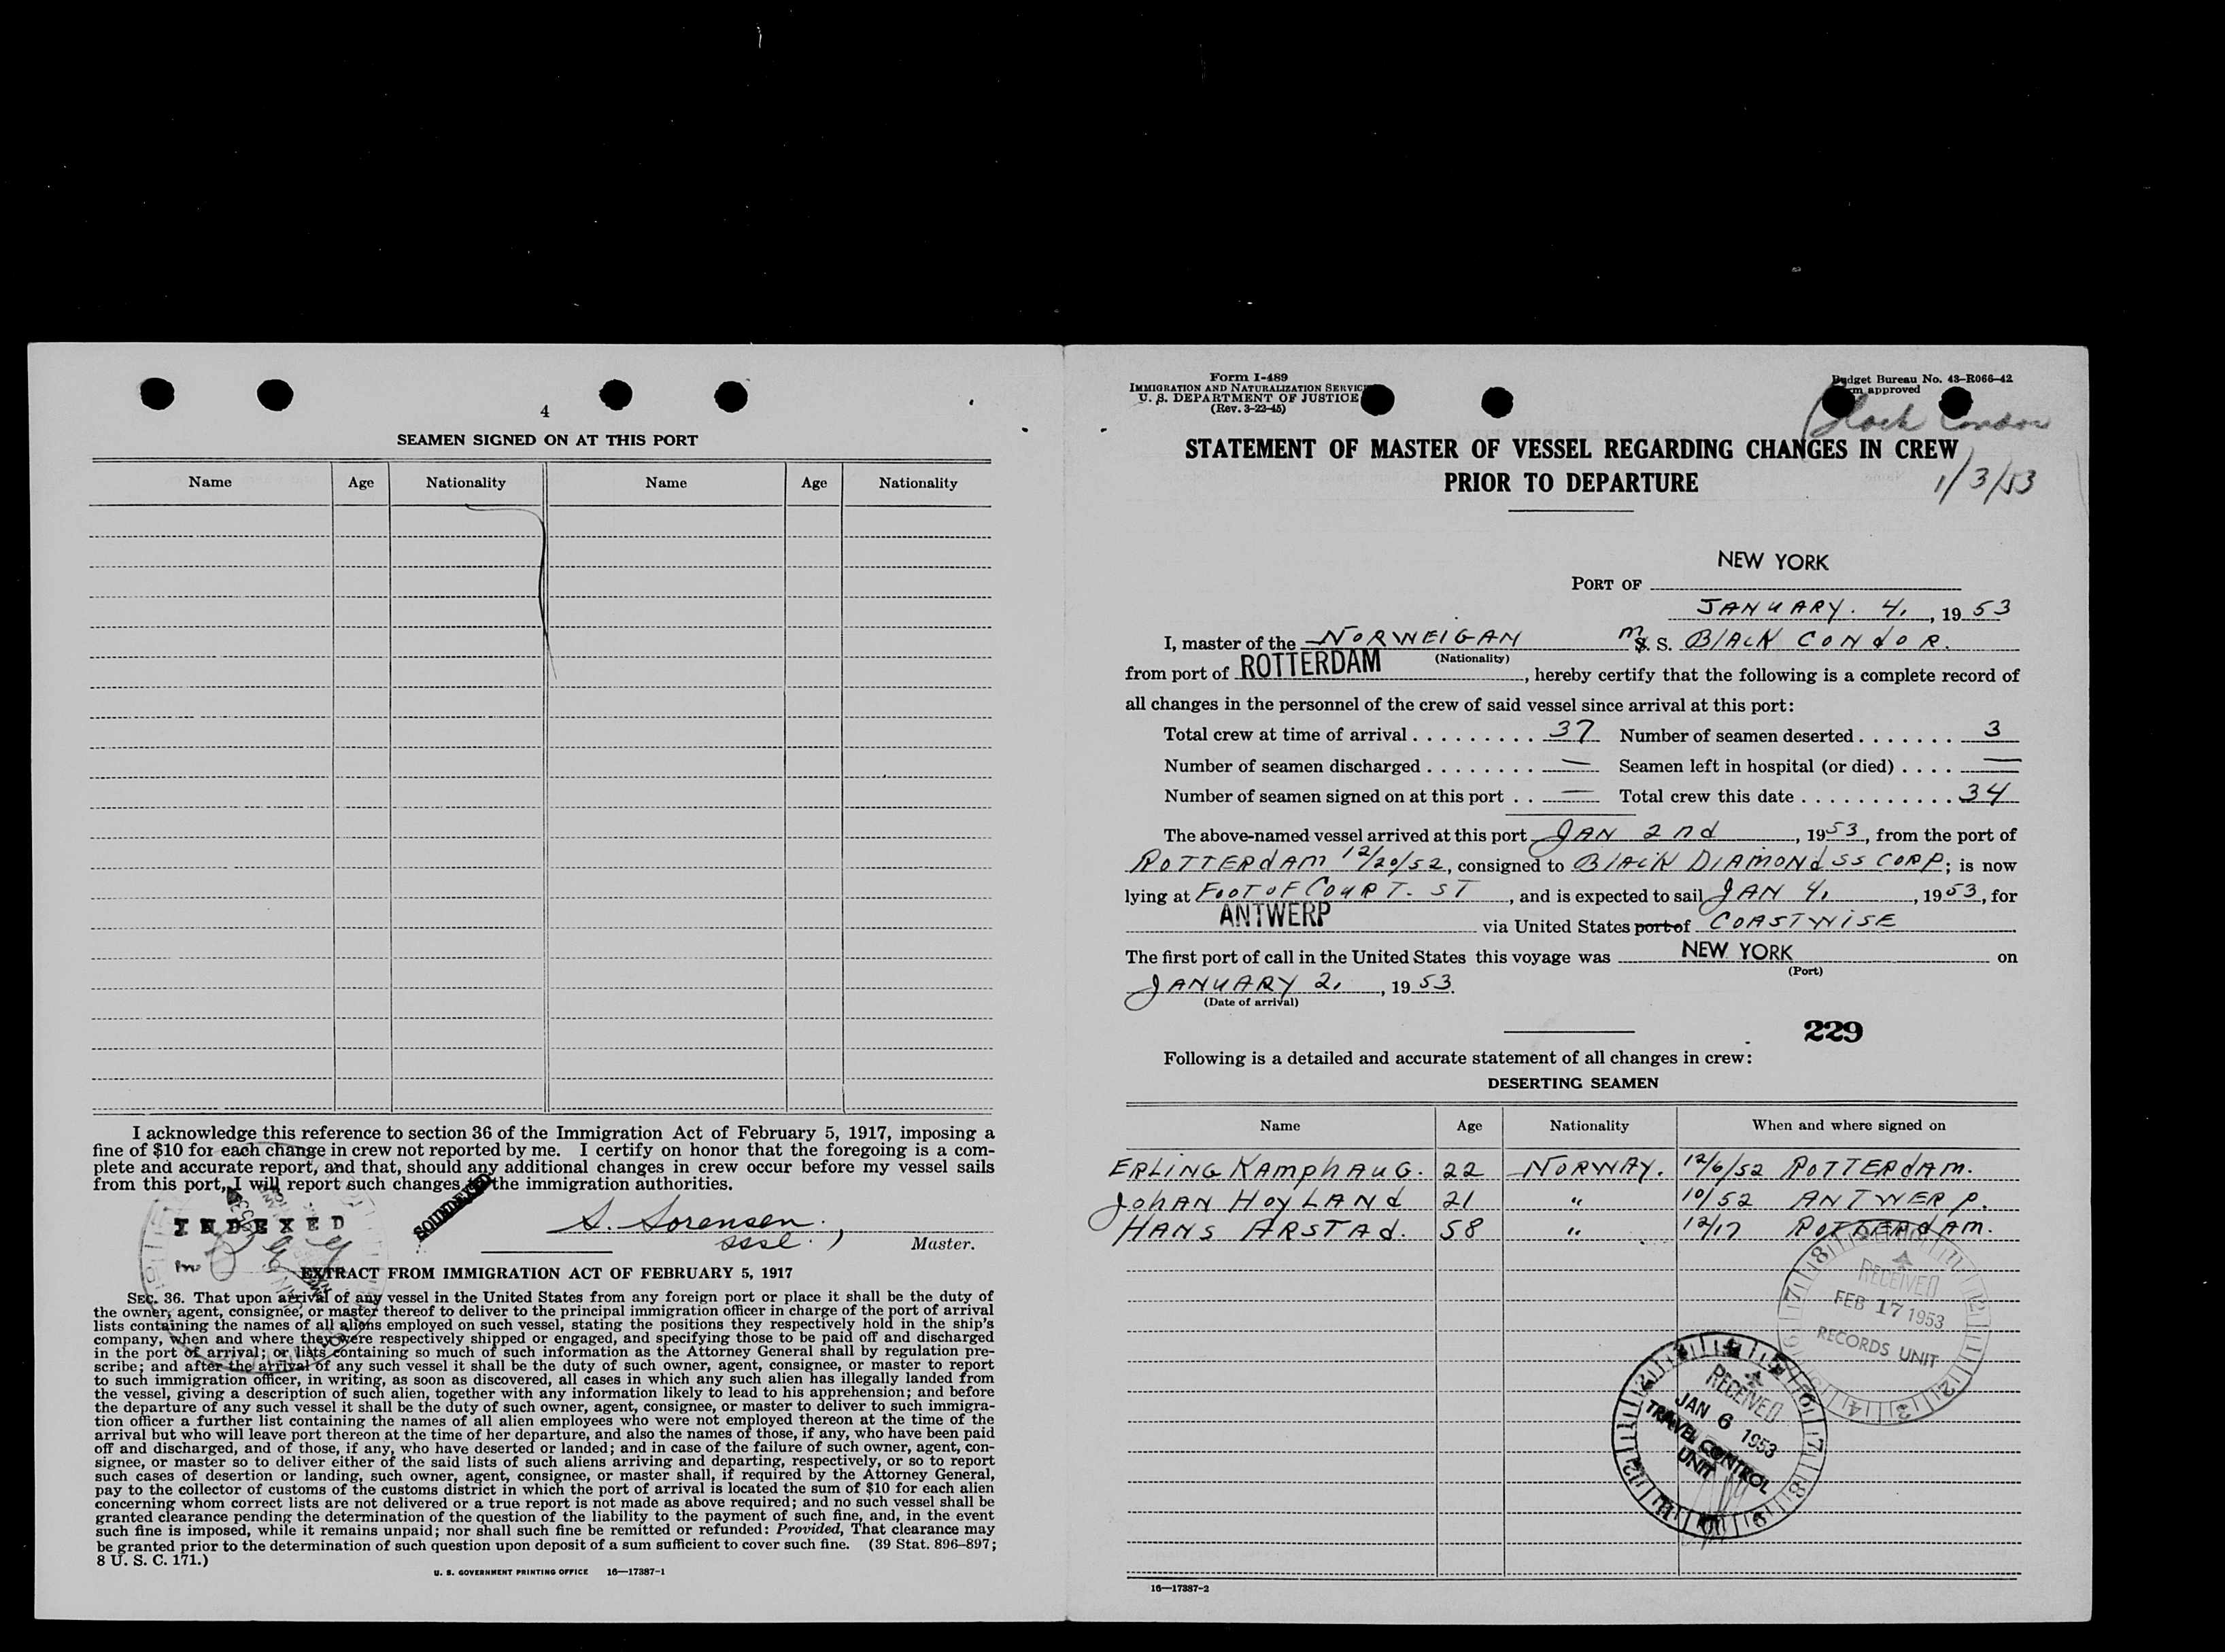 4
SEAMEN SIGNED ON AT THIS PORT
Name Age Nationality Name Age Nationality
I acknowledge this reference to section 36 of the Immigration Act of February 5, 1917, imposing a
fine of $10 for each change in crew not reported by me. I certify on honor that the foregoing is a com-
plete and accurate report, and that, should any additional changes in crew occur before my vessel sails
from this port, I will report such changes to the immigration authorities.
INDEXED
SOUNDEXED
S. Sorensen
Master.
EXTRACT FROM IMMIGRATION ACT OF FEBRUARY 5, 1917
SEC. 36. That upon arrival of any vessel in the United States from any foreign port or place it shall be the duty of
the owner, agent, consignee, or master thereof to deliver to the principal immigration officer in charge of the port of arrival
lists containing the names of all aliens employed on such vessel, stating the positions they respectively hold in the ship's
company, when and where they were respectively shipped or engaged, and specifying those to be paid off and discharged
in the port of arrival; or lists containing so much of such information as the Attorney General shall by regulation pre-
scribe; and after the arrival of any such vessel it shall be the duty of such owner, agent, consignee, or master to report
to such immigration officer, in writing, as soon as discovered, all cases in which any such alien has illegally landed from
the vessel, giving a description of such alien, together with any information likely to lead to his apprehension; and before
the departure of any such vessel it shall be the duty of such owner, agent, consignee, or master to deliver to such immigra-
tion officer a further list containing the names of all alien employees who were not employed thereon at the time of the
arrival but who will leave port thereon at the time of her departure, and also the names of those, if any, who have been paid
off and discharged, and of those, if any, who have deserted or landed; and in case of the failure of such owner, agent, con-
signee, or master so to deliver either of the said lists of such aliens arriving and departing, respectively, or so to report
such cases of desertion or landing, such owner, agent, consignee, or master shall, if required by the Attorney General,
pay to the collector of customs of the customs district in which the port of arrival is located the sum of $10 for each alien
concerning whom correct lists are not delivered or a true report is not made as above required; and no such vessel shall be
granted clearance pending the determination of the question of the liability to the payment of such fine, and, in the event
such fine is imposed, while it remains unpaid; nor shall such fine be remitted or refunded: Provided, That clearance may
be granted prior to the determination of such question upon deposit of a sum sufficient to cover such fine. (39 Stat. 896-897;
8 U. S. C. 171.)
U. S. GOVERNMENT PRINTING OFFICE 16—17387-1
Form I-489
IMMIGRATION AND NATURALIZATION SERVICE
U. S. DEPARTMENT OF JUSTICE
(Rev. 3-22-45)
Budget Bureau No. 43-R066-42
Form approved
Black Condor
STATEMENT OF MASTER OF VESSEL REGARDING CHANGES IN CREW
PRIOR TO DEPARTURE
1/3/53
NEW YORK
PORT OF
JANUARY. 4, , 19 53
I, master of the NORWEIGAN M S. S. BlACK CONdOR.
(Nationality)
from port of ROTTERDAM , hereby certify that the following is a complete record of
all changes in the personnel of the crew of said vessel since arrival at this port:
Total crew at time of arrival . . . . . . . . . 37 Number of seamen deserted . . . . . . . 3
Number of seamen discharged . . . . . . . . — Seamen left in hospital (or died) . . . . —
Number of seamen signed on at this port . . — Total crew this date . . . . . . . . . . . 34
The above-named vessel arrived at this port JAN 2nd , 1953, from the port of
ROTTERdAM 12/20/52, consigned to BlACK DIAMONd SS CORP; is now
lying at FOOT OF COURT. ST , and is expected to sail JAN 4, , 1953, for
ANTWERP via United States port of COASTWISE
The first port of call in the United States this voyage was NEW YORK on
(Port)
JANUARY 2, , 19 53.
(Date of arrival)
229
Following is a detailed and accurate statement of all changes in crew:
DESERTING SEAMEN
Name Age Nationality When and where signed on
ERLING KAMPhAUG. 22 NORWAY. 12/6/52 ROTTERdAM.
JOhAN HOYLANd 21 " 10/52 ANTWERP.
HANS ARSTAd. 58 " 12/17 ROTTERdAM.
RECEIVED
FEB 17 1953
RECORDS UNIT
RECEIVED
JAN 6 1953
TRAVEL CONTROL
UNIT
16—17387-2